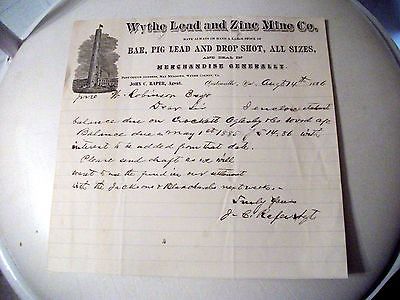 Wythe Lead and Zinc Mine Co.
HAVE ALWAYS ON HAND A LARGE STOCK OF
BAR, PIG LEAD AND DROP SHOT, ALL SIZES,
AND DEAL IN
MERCHANDISE GENERALLY.
JOHN C. RAPER, Agent.
Va., Augt 14th 1886
W Robinson Esqr
Dear Sir I enclose
balance due on Crockett Oglesby & Co Wood a/c
Balance due is May 1st 1885 $14.36 with
interest to be added from that date.
Please send draft as we will
want to use the fund in our settlement
with the Jacksons & Blanchards next week
Truly Yours
J. C. Raper Agt